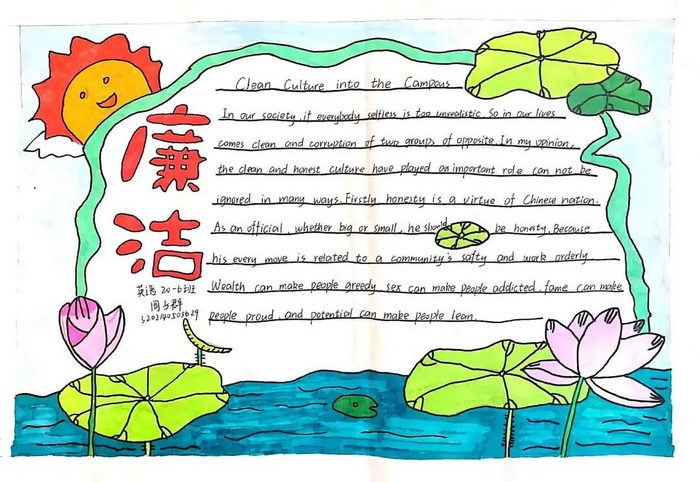 Clean Culture into the Campus
廉洁
In our society, if everybody selfless is too unrealistic. So in our lives
comes clean and corruption of two groups of opposite. In my opinion,
the clean and honest culture have played an important role can not be
ignored in many ways. Firstly, honesty is a virtue of Chinese nation.
As an official, whether big or small, he should be honesty. Because
his every move is related to a community's safty and work orderly
Wealth can make people greedy, sex can make people addicted, fame can make
people proud, and potential can make people lean.
英语20-6班
3202140503629